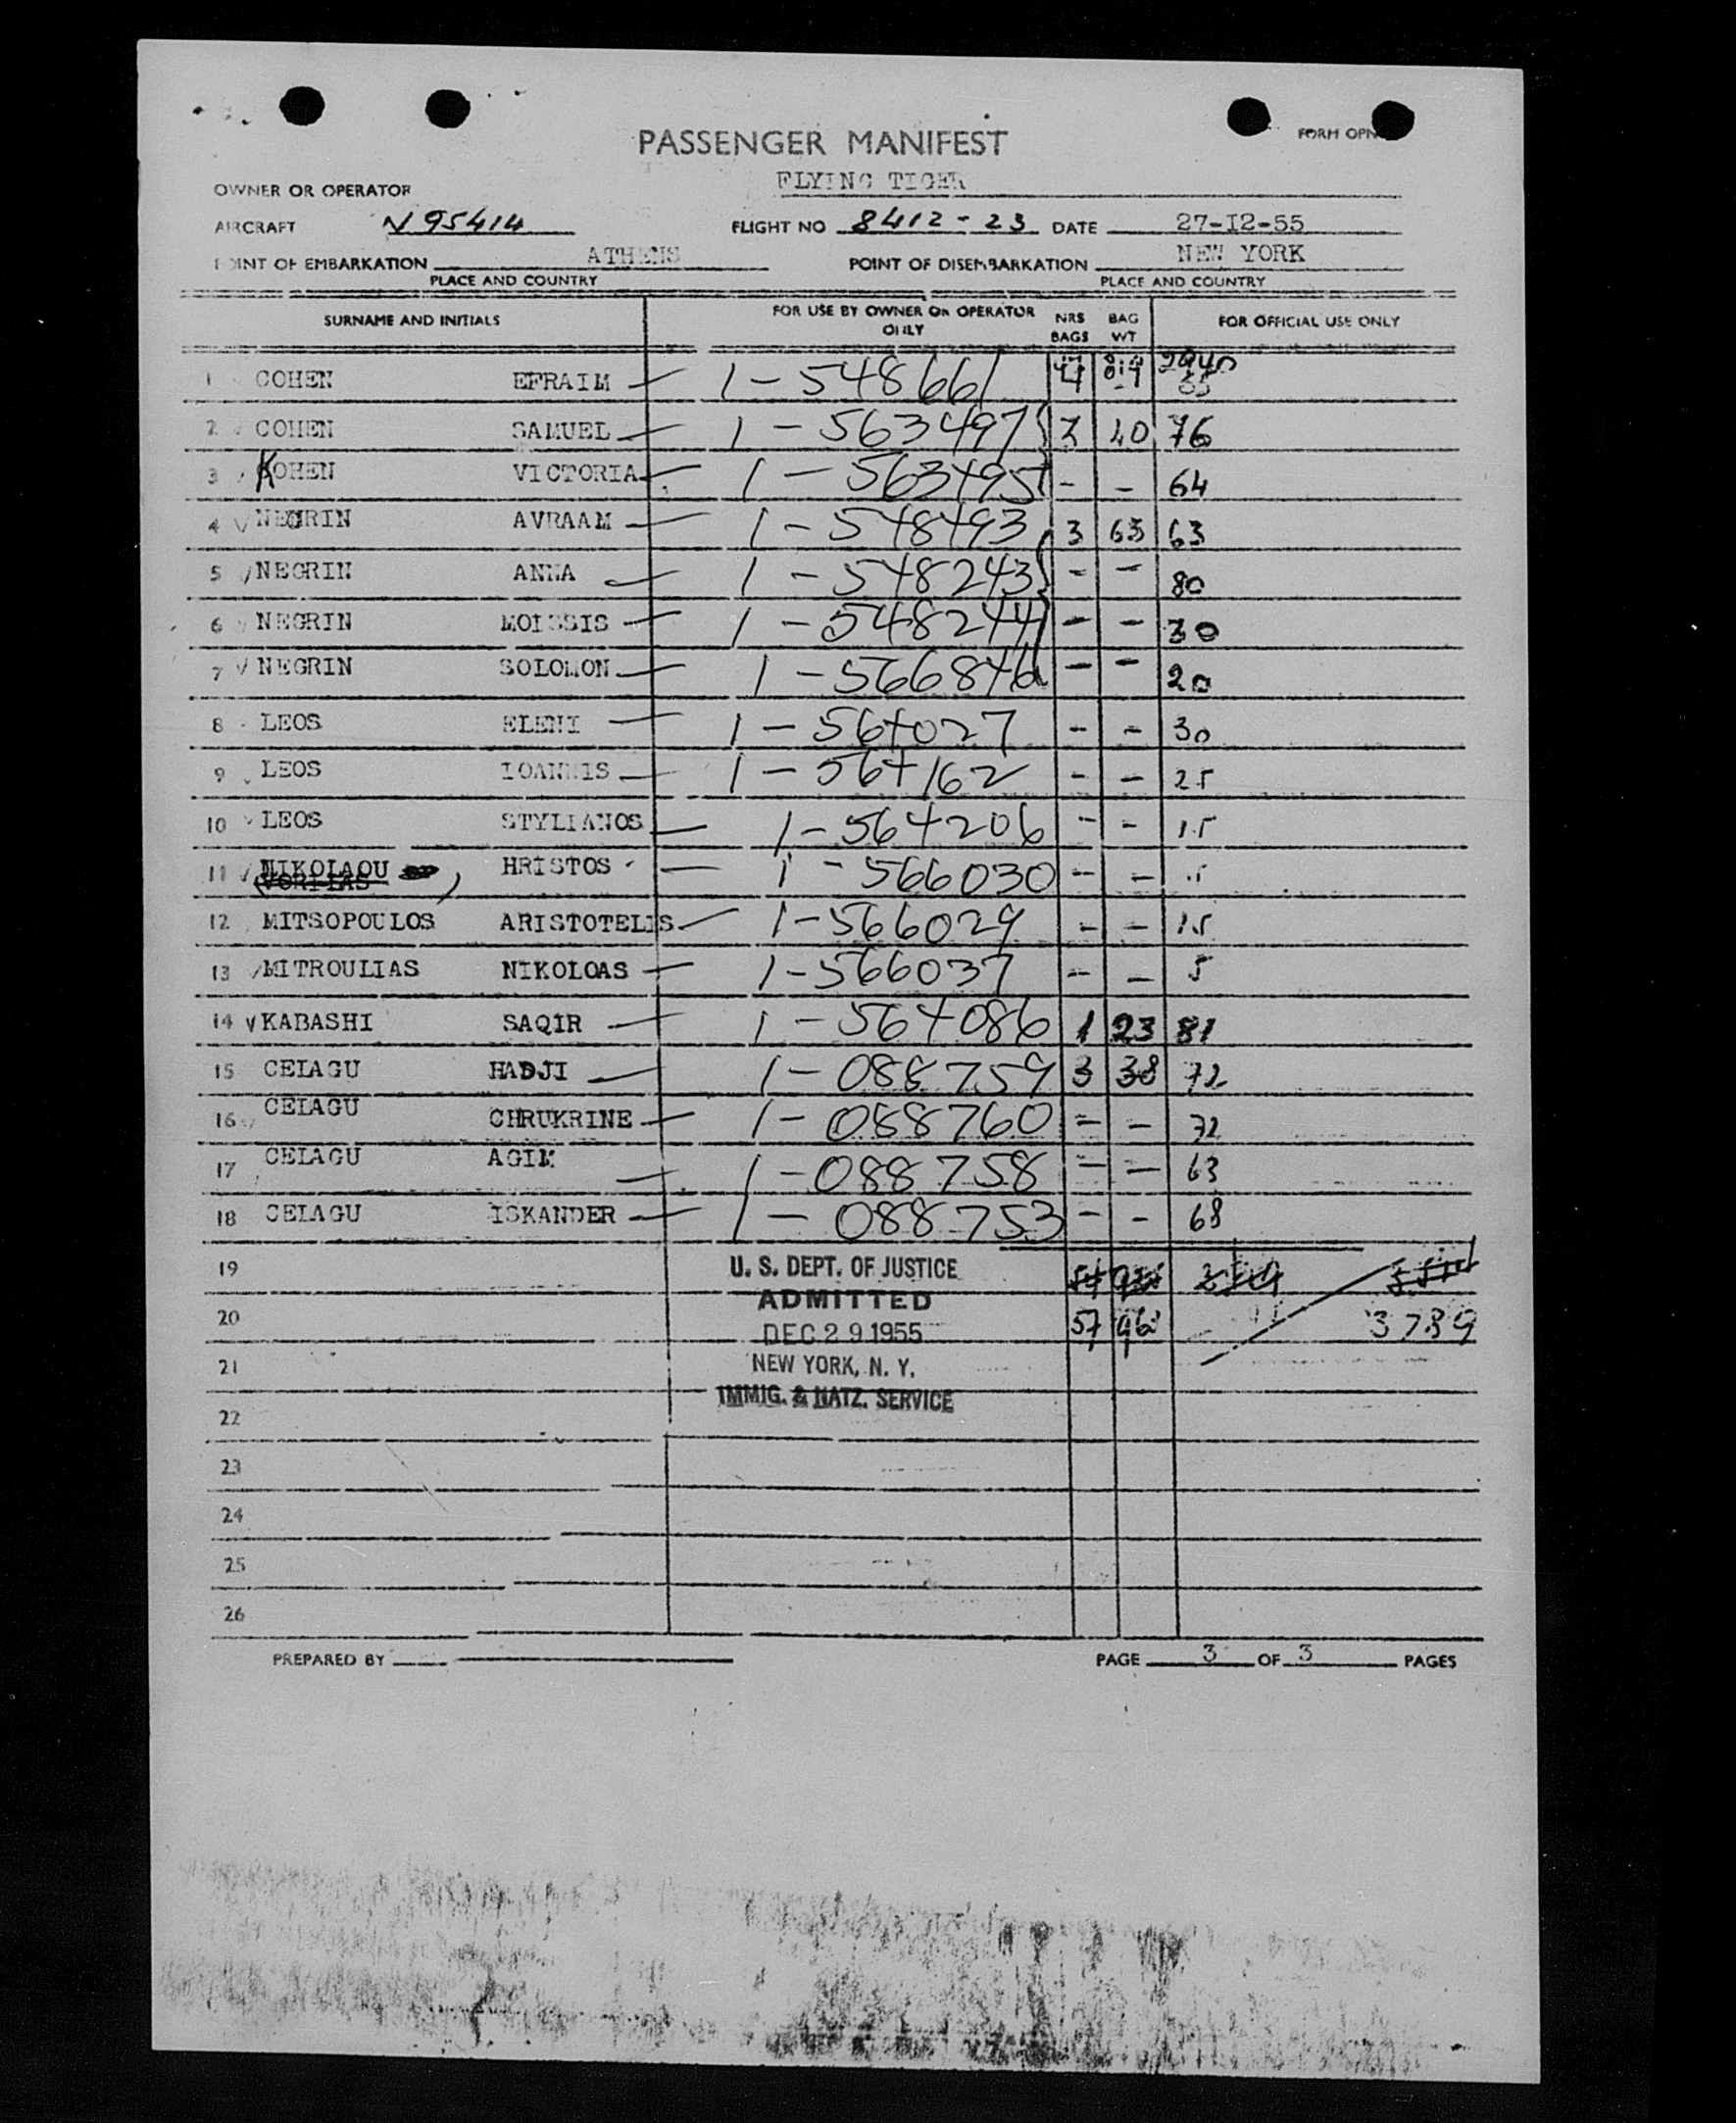 PASSENGER MANIFEST
FORM OPN
OWNER OR OPERATOR FLYING TIGER
AIRCRAFT N95414 FLIGHT NO 8412-23 DATE 27-I2-55
POINT OF EMBARKATION ATHENS POINT OF DISEMBARKATION NEW YORK
PLACE AND COUNTRY PLACE AND COUNTRY
SURNAME AND INITIALS FOR USE BY OWNER OR OPERATOR ONLY NRS BAGS BAG WT FOR OFFICIAL USE ONLY
1 COHEN EFRAIM — 1-548661 4 2940
2 COHEN SAMUEL — 1-563497 3 40 76
3 KOHEN VICTORIA — 1-563495 - - 64
4 NEGRIN AVRAAM — 1-548493 3 63 63
5 NEGRIN ANNA — 1-548243 - - 80
6 NEGRIN MOISSIS — 1-548244 - - 30
7 NEGRIN SOLOMON — 1-566846 - - 20
8 LEOS ELENI — 1-564027 - - 30
9 LEOS IOANNIS — 1-564162 - - 25
10 LEOS STYLIANOS — 1-564206 - - 15
11 NIKOLAOU HRISTOS — 1-566030 - -
12 MITSOPOULOS ARISTOTELIS — 1-566029 - - 15
13 MITROULIAS NIKOLOAS — 1-566037 - - 5
14 KABASHI SAQIR — 1-564086 1 23 81
15 CELAGU HADJI — 1-088759 3 38 72
16 CELAGU CHRUKRINE — 1-088760 - - 72
17 CELAGU AGIM — 1-088758 - - 63
18 CELAGU ISKANDER — 1-088753 - - 68
19 U. S. DEPT. OF JUSTICE
ADMITTED
20 DEC 29 1955 57 3789
21 NEW YORK, N. Y.
IMMIG. & NATZ. SERVICE
22
23
24
25
26
PREPARED BY PAGE 3 OF 3 PAGES